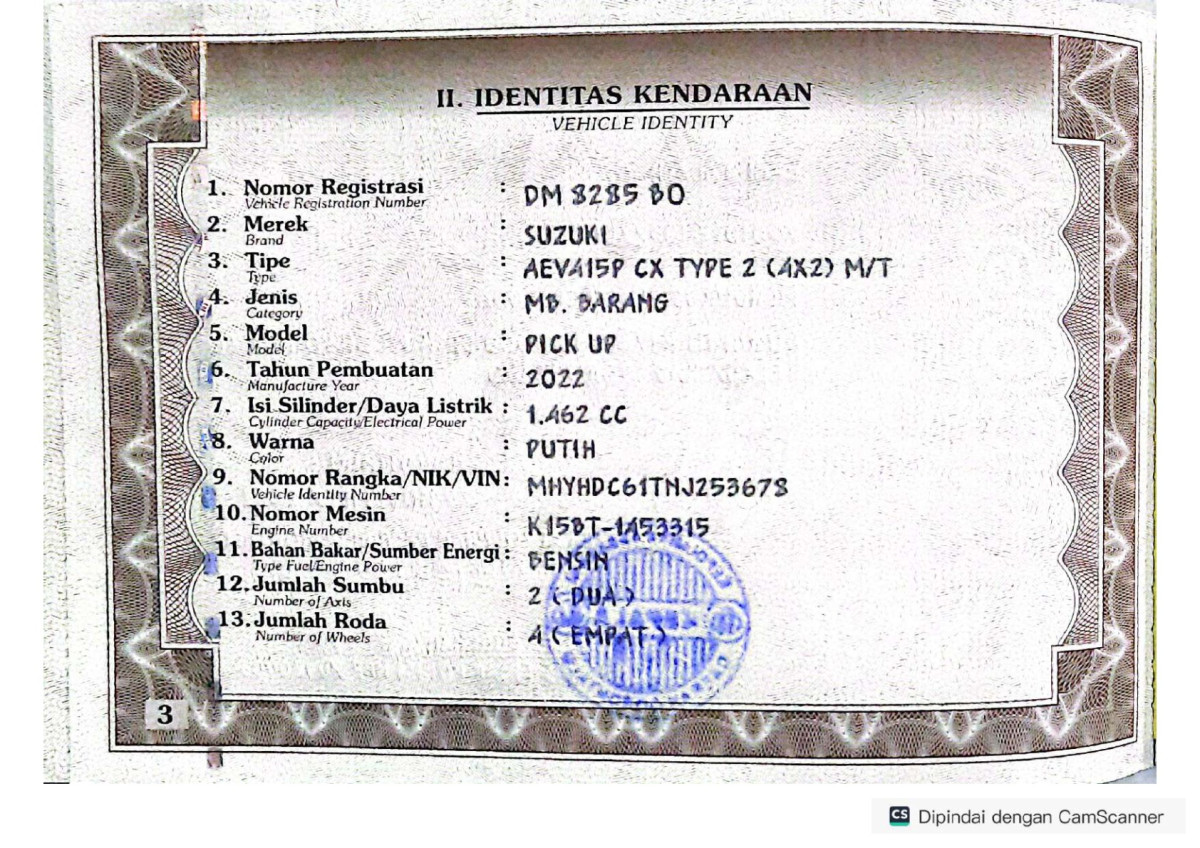 II. IDENTITAS KENDARAAN
VEHICLE IDENTITY
1. Nomor Registrasi : DM 8285 BO
Vehicle Registration Number
2. Merek : SUZUKI
Brand
3. Tipe : AEV415P CX TYPE 2 (4X2) M/T
Type
4. Jenis : MB. BARANG
Category
5. Model : PICK UP
Model
6. Tahun Pembuatan : 2022
Manufacture Year
7. Isi Silinder/Daya Listrik : 1.462 CC
Cylinder Capacity/Electrical Power
8. Warna : PUTIH
Color
9. Nomor Rangka/NIK/VIN : MHYHDC61TNJ253678
Vehicle Identity Number
10. Nomor Mesin : K15BT-1453315
Engine Number
11. Bahan Bakar/Sumber Energi : BENSIN
Type Fuel/Engine Power
12. Jumlah Sumbu : 2 ( DUA )
Number of Axis
13. Jumlah Roda : 4 ( EMPAT )
Number of Wheels
3
CS Dipindai dengan CamScanner